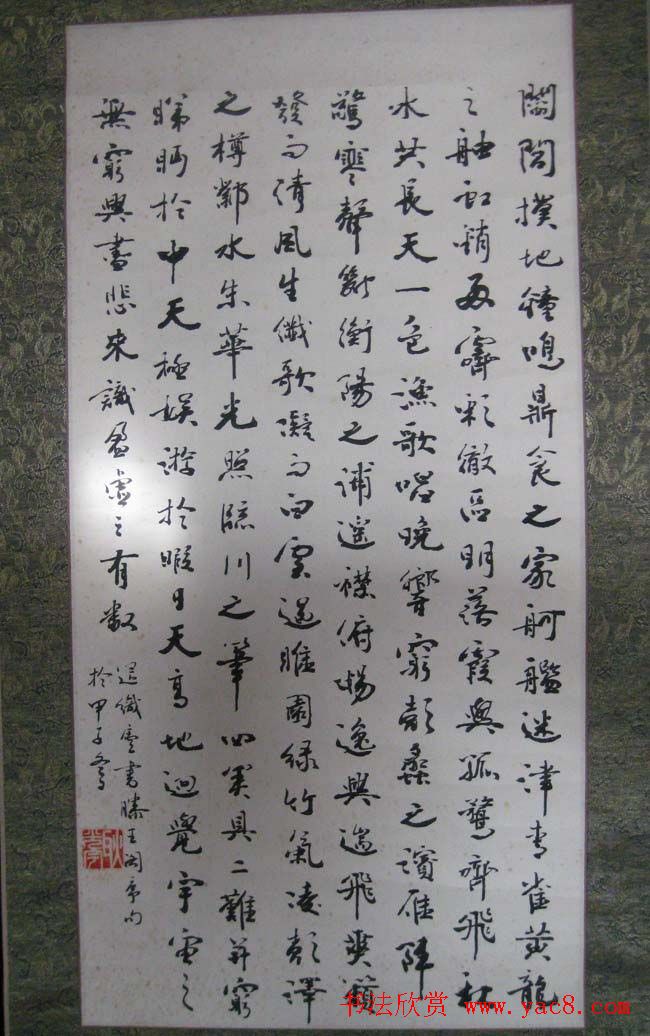 閭閻撲地鐘鳴鼎食之家舸艦迷津青雀黃龍
之舳虹銷雨霽彩徹區明落霞與孤鶩齊飛秋
水共長天一色漁歌唱晚響窮彭蠡之濱雁陣
驚寒聲斷衡陽之浦遙襟俯暢逸興遄飛爽籟
發而清風生纖歌凝而白雲遏睢園綠竹氣凌彭澤
之樽鄴水朱華光照臨川之筆四美具二難并窮
睇眄於中天極娛遊於暇日天高地迥覺宇宙之
無窮興盡悲來識盈虛之有數
退織室書滕王閣序句
於甲子冬
书法欣赏 www.yac8.com